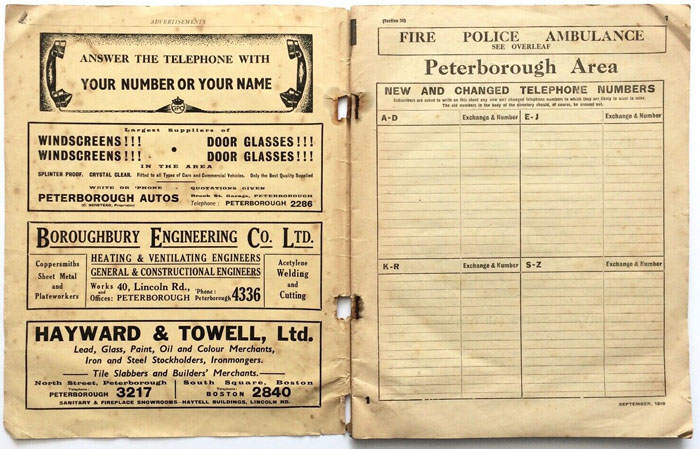 ADVERTISEMENTS
ANSWER THE TELEPHONE WITH
YOUR NUMBER OR YOUR NAME
GPO
Largest Suppliers of
WINDSCREENS!!! • DOOR GLASSES!!!
WINDSCREENS!!! DOOR GLASSES!!!
IN THE AREA
SPLINTER PROOF. CRYSTAL CLEAR. Fitted to all Types of Cars and Commercial Vehicles. Only the Best Quality Supplied
WRITE OR 'PHONE - QUOTATIONS GIVEN
PETERBOROUGH AUTOS Brook St. Garage, PETERBOROUGH
Proprietor) Telephone: PETERBOROUGH 2286
BOROUGHBURY ENGINEERING CO. LTD.
Coppersmiths
Sheet Metal
and
Plateworkers
HEATING & VENTILATING ENGINEERS
GENERAL & CONSTRUCTIONAL ENGINEERS
Works and Offices: 40, Lincoln Rd., PETERBOROUGH
'Phone: Peterborough 4336
Acetylene
Welding
and
Cutting
HAYWARD & TOWELL, Ltd.
Lead, Glass, Paint, Oil and Colour Merchants,
Iron and Steel Stockholders, Ironmongers.
Tile Slabbers and Builders' Merchants.
North Street, Peterborough South Square, Boston
Telephone: Telephone:
PETERBOROUGH 3217 BOSTON 2840
SANITARY & FIREPLACE SHOWROOMS—HAYTELL BUILDINGS, LINCOLN RD.
1
FIRE POLICE AMBULANCE
SEE OVERLEAF
Peterborough Area
NEW AND CHANGED TELEPHONE NUMBERS
Subscribers are asked to write on this sheet any new and changed telephone numbers to which they are likely to want to refer.
The old numbers in the body of the directory should, of course, be crossed out.
A-D Exchange & Number E-J Exchange & Number
K-R Exchange & Number S-Z Exchange & Number
1
SEPTEMBER, 1949